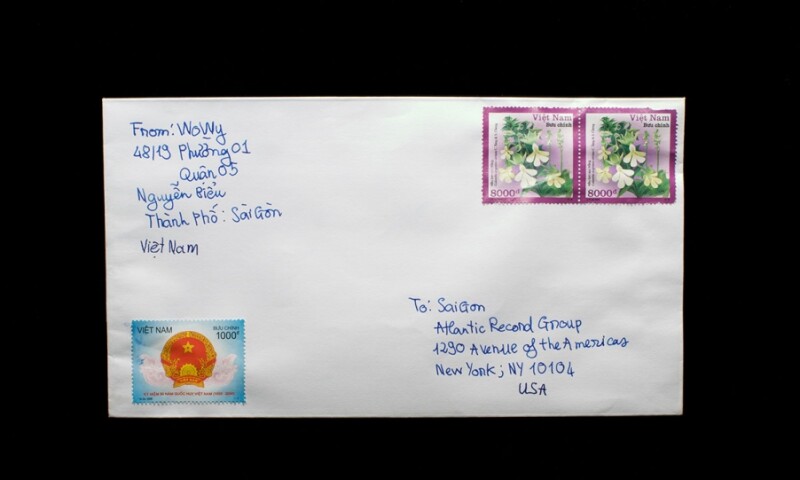 From: Wowy
48/19 Phường 01
Quận 05
Nguyễn Biểu
Thành Phố: Sài Gòn
Việt Nam
Việt Nam
Bưu chính
8000đ
Việt Nam
Bưu chính
8000đ
To: SaiGon
Atlantic Record Group
1290 Avenue of the Americas
New York; NY 10104
USA
VIỆT NAM
BƯU CHÍNH
1000đ